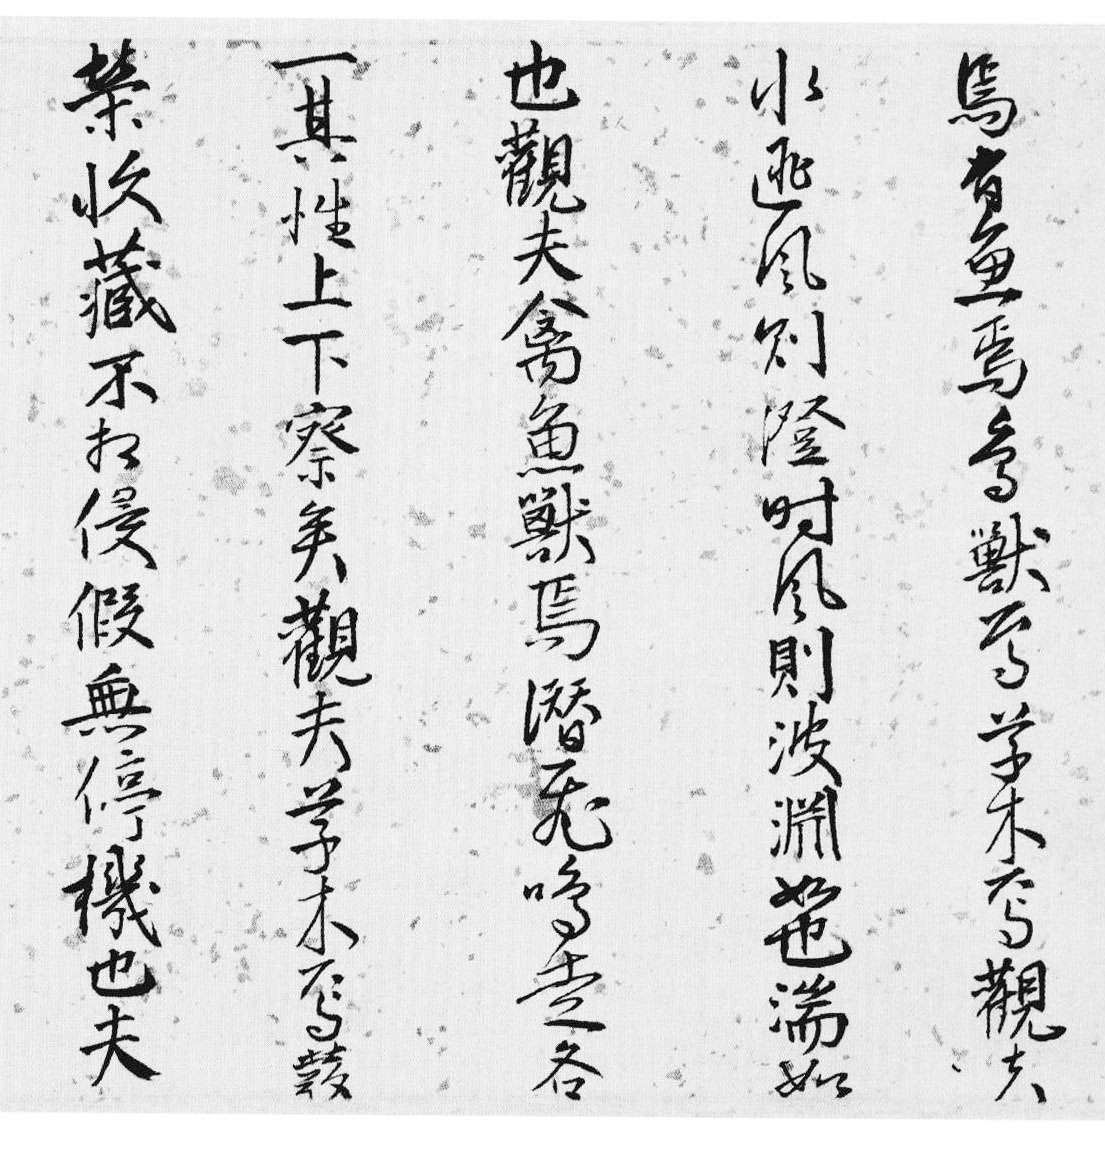 焉有魚焉鳥獸焉草木焉觀夫
水匪風則澄时風則波淵如也湍如
也觀夫禽魚獸焉潛飛鳴走各
一其性上下察矣觀夫草木焉發
榮收藏不相侵假無停機也夫